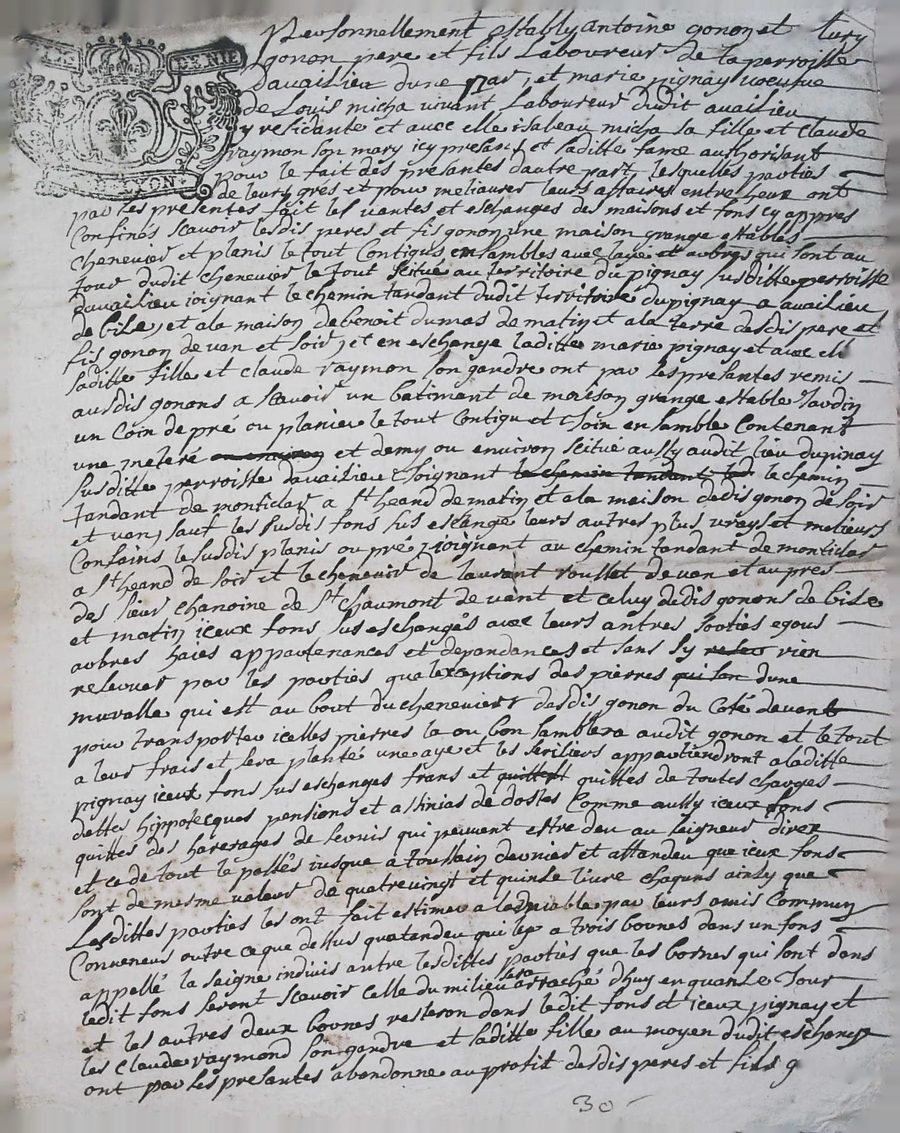 DE NIE
LYON
Personnellement estably antoine gonon et
gonon pere et fils Laboureur de la perroisse
davailieu dune par, et marie pignay voeufue
de Louis micha vivant Laboureur dudit availieu
y residante et avec elle isabeau micha sa fille et Claude
raymon son mary icy presant et saditte fame authorisant
pour le fait des presantes dautre part, lesquelles parties
de leurs grés et pour meliaurer leurs affaires entre heux ont
par les presentes fait les vantes et eschanges des maisons et fons cy appres
Confinés scavoir lesdis peres et fis gonon une maison grange estables
chenevier et planis le tout Contigus ensambles avec laye et aubres qui sont au
tour dudit chenevier le tout scitué au territoire du pignay susditte perroisse
davailieu ioignant le chemin tandant dudit territoire du pignay a availieu
de bise, et a la maison de benoit dumas de matin et a la terre desdis pere et
fis gonon de van et soir, et en eschange laditte marie pignay et avec elle
saditte fille et Claude raymon son gandre ont par les presantes remis
ausdis gonons a scavoir un batiment de maison grange estable Jardin
un Coin de pré ou planier le tout Contigu et Join ensamble Contenant
une meteré ou environ et demy ou environ scitué aussy audit lieu dupinay
susditte perroisse davailieu Joignant le chemin tandant le chemin
tandant de monticlar a St heand de matin et a la maison desdis gonon de soir
et van, sauf les susdis fons sus eschangé leurs autres plus vrays et melieurs
Confains le susdis planis ou pré, ioignant au chemin tandant de monticlar
a St heand de soir et le chenevier de laurant rousset de van et au pres
des sieur chanoine de St chaumont de vant et celuy desdis gonons de bise
et matin iceux fons sus eschangés avec leurs antres sorties egous
aubres haies appartenances et depandances et sans sy rien
reserver par les parties qua lexceptions des pierres qui son dune
muralle qui est au bout du chenevier desdis gonon du Coté devant
pour transporter icelles pierres la ou bon samblera audit gonon et le tout
a leur frais et sera planté une aye et les seriliers appartiendront a laditte
pignay iceux fons sus eschanges frans et quittes de toutes charges
dettes hippotecques pensions et assinias de dostes Comme aussy iceux fons
quittes des harerages de servis qui peuvent estre deu au seigneur direx
et ce de tout le passés iusque a toussain dernier et attandeu que iceux fons
sont de mesme valeur de quatrevingt et quinse livre chaquns ainsy que
Lesdittes parties les ont fait estimer a ledmiable par leurs amis Commun
Conveneus outre ce que dessus quatandeu qui lya trois bornes dans un fons
appellé la seigne indivis antre lesdittes parties que les bornes qui sont dans
ledit fons seront scavoir celle du milieu sera arraché dhuy en quanse Jour
et les autres deux bornes resteron dans ledit fons et iceux pignay et
les Claude raymond son gandre et saditte fille au moyen dudit eschange
ont par les presantes abandonne au profit desdis peres et fils g
30